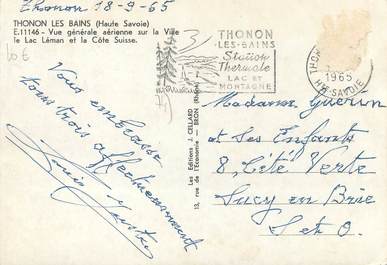 Thonon 18-9-65
THONON LES BAINS (Haute Savoie)
E.11146 - Vue générale aérienne sur la Ville
le Lac Léman et la Côte Suisse.
10€
Vous embrasse
tous trois affectueusement
THONON
-LES-BAINS
Station
Thermale
LAC ET
MONTAGNE
THON
1965
HTE SAVOIE
Les Editions J. CELLARD
13, rue de l'Economie - BRON (Rhône)
Madame Guerin
et Ses Enfants
8, Cité Verte
Sucy en Brie
S et O.